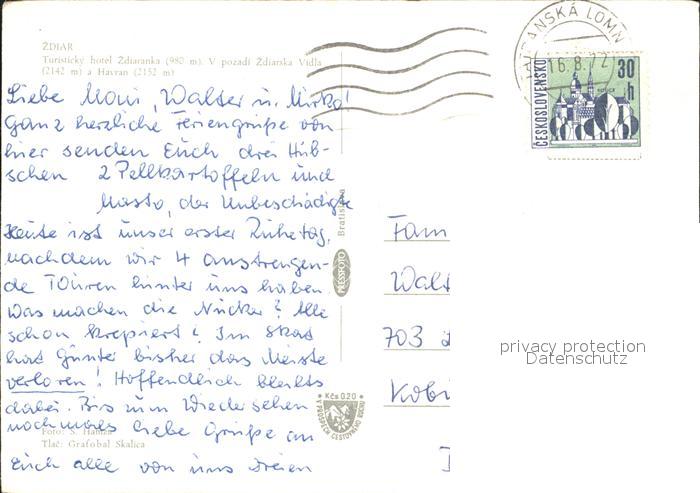 ŽDIAR
Turistický hotel Ždiaranka (980 m). V pozadí Ždiarska Vidla
(2142 m) a Havran (2152 m)
Liebe Moni, Walter u. Mirko!
Ganz herzliche Feriengrüße von
hier senden Euch drei Hüb-
schen 2 Pellkartoffeln und
Masto, der Unbeschädigte
Heute ist unser erster Ruhetag,
nachdem wir 4 anstrengen-
de Touren hinter uns haben.
Was machen die Nucker? Alle
schon krepiert? Im Skat
hat Günter bisher das Meiste
verloren! Hoffendlich bleibts
dabei. Bis zum Wiedersehen
nochmals liebe Grüße an
Foto: S. Hanke
Tlač: Grafobal Skalica
Euch alle von uns dreien
Bratislava
PRESSFOTO
Kčs 0,20
V PROSPECH CESTOVNÉHO RUCHU
TATRANSKÁ LOMN
16.8.72
ČESKOSLOVENSKO
30 h
KOŠICE
Fam
Walt
703
Kobi
privacy protection
Datenschutz